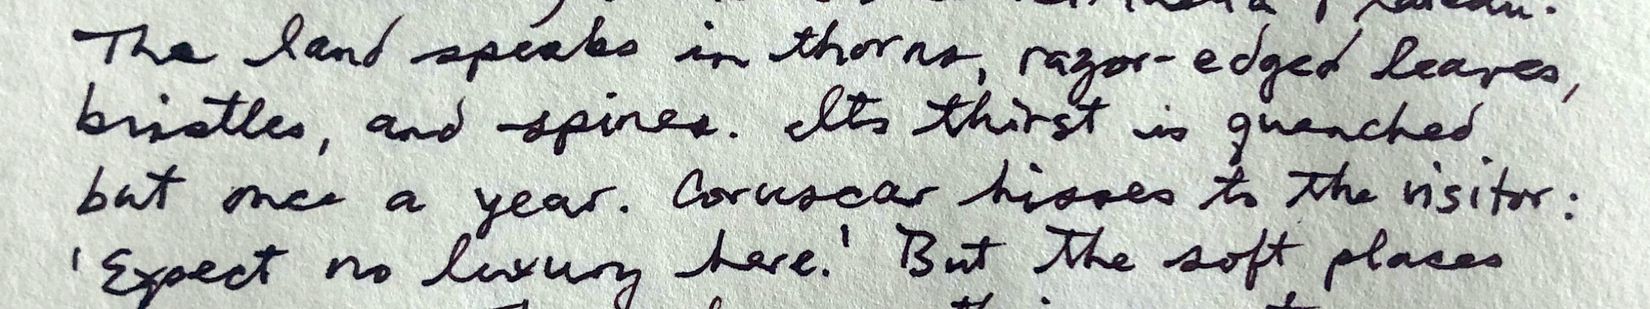 The land speaks in thorns, razor-edged leaves,
bristles, and spines. Its thirst is quenched
but once a year. Coruscar hisses to the visitor:
'Expect no luxury here.' But the soft places